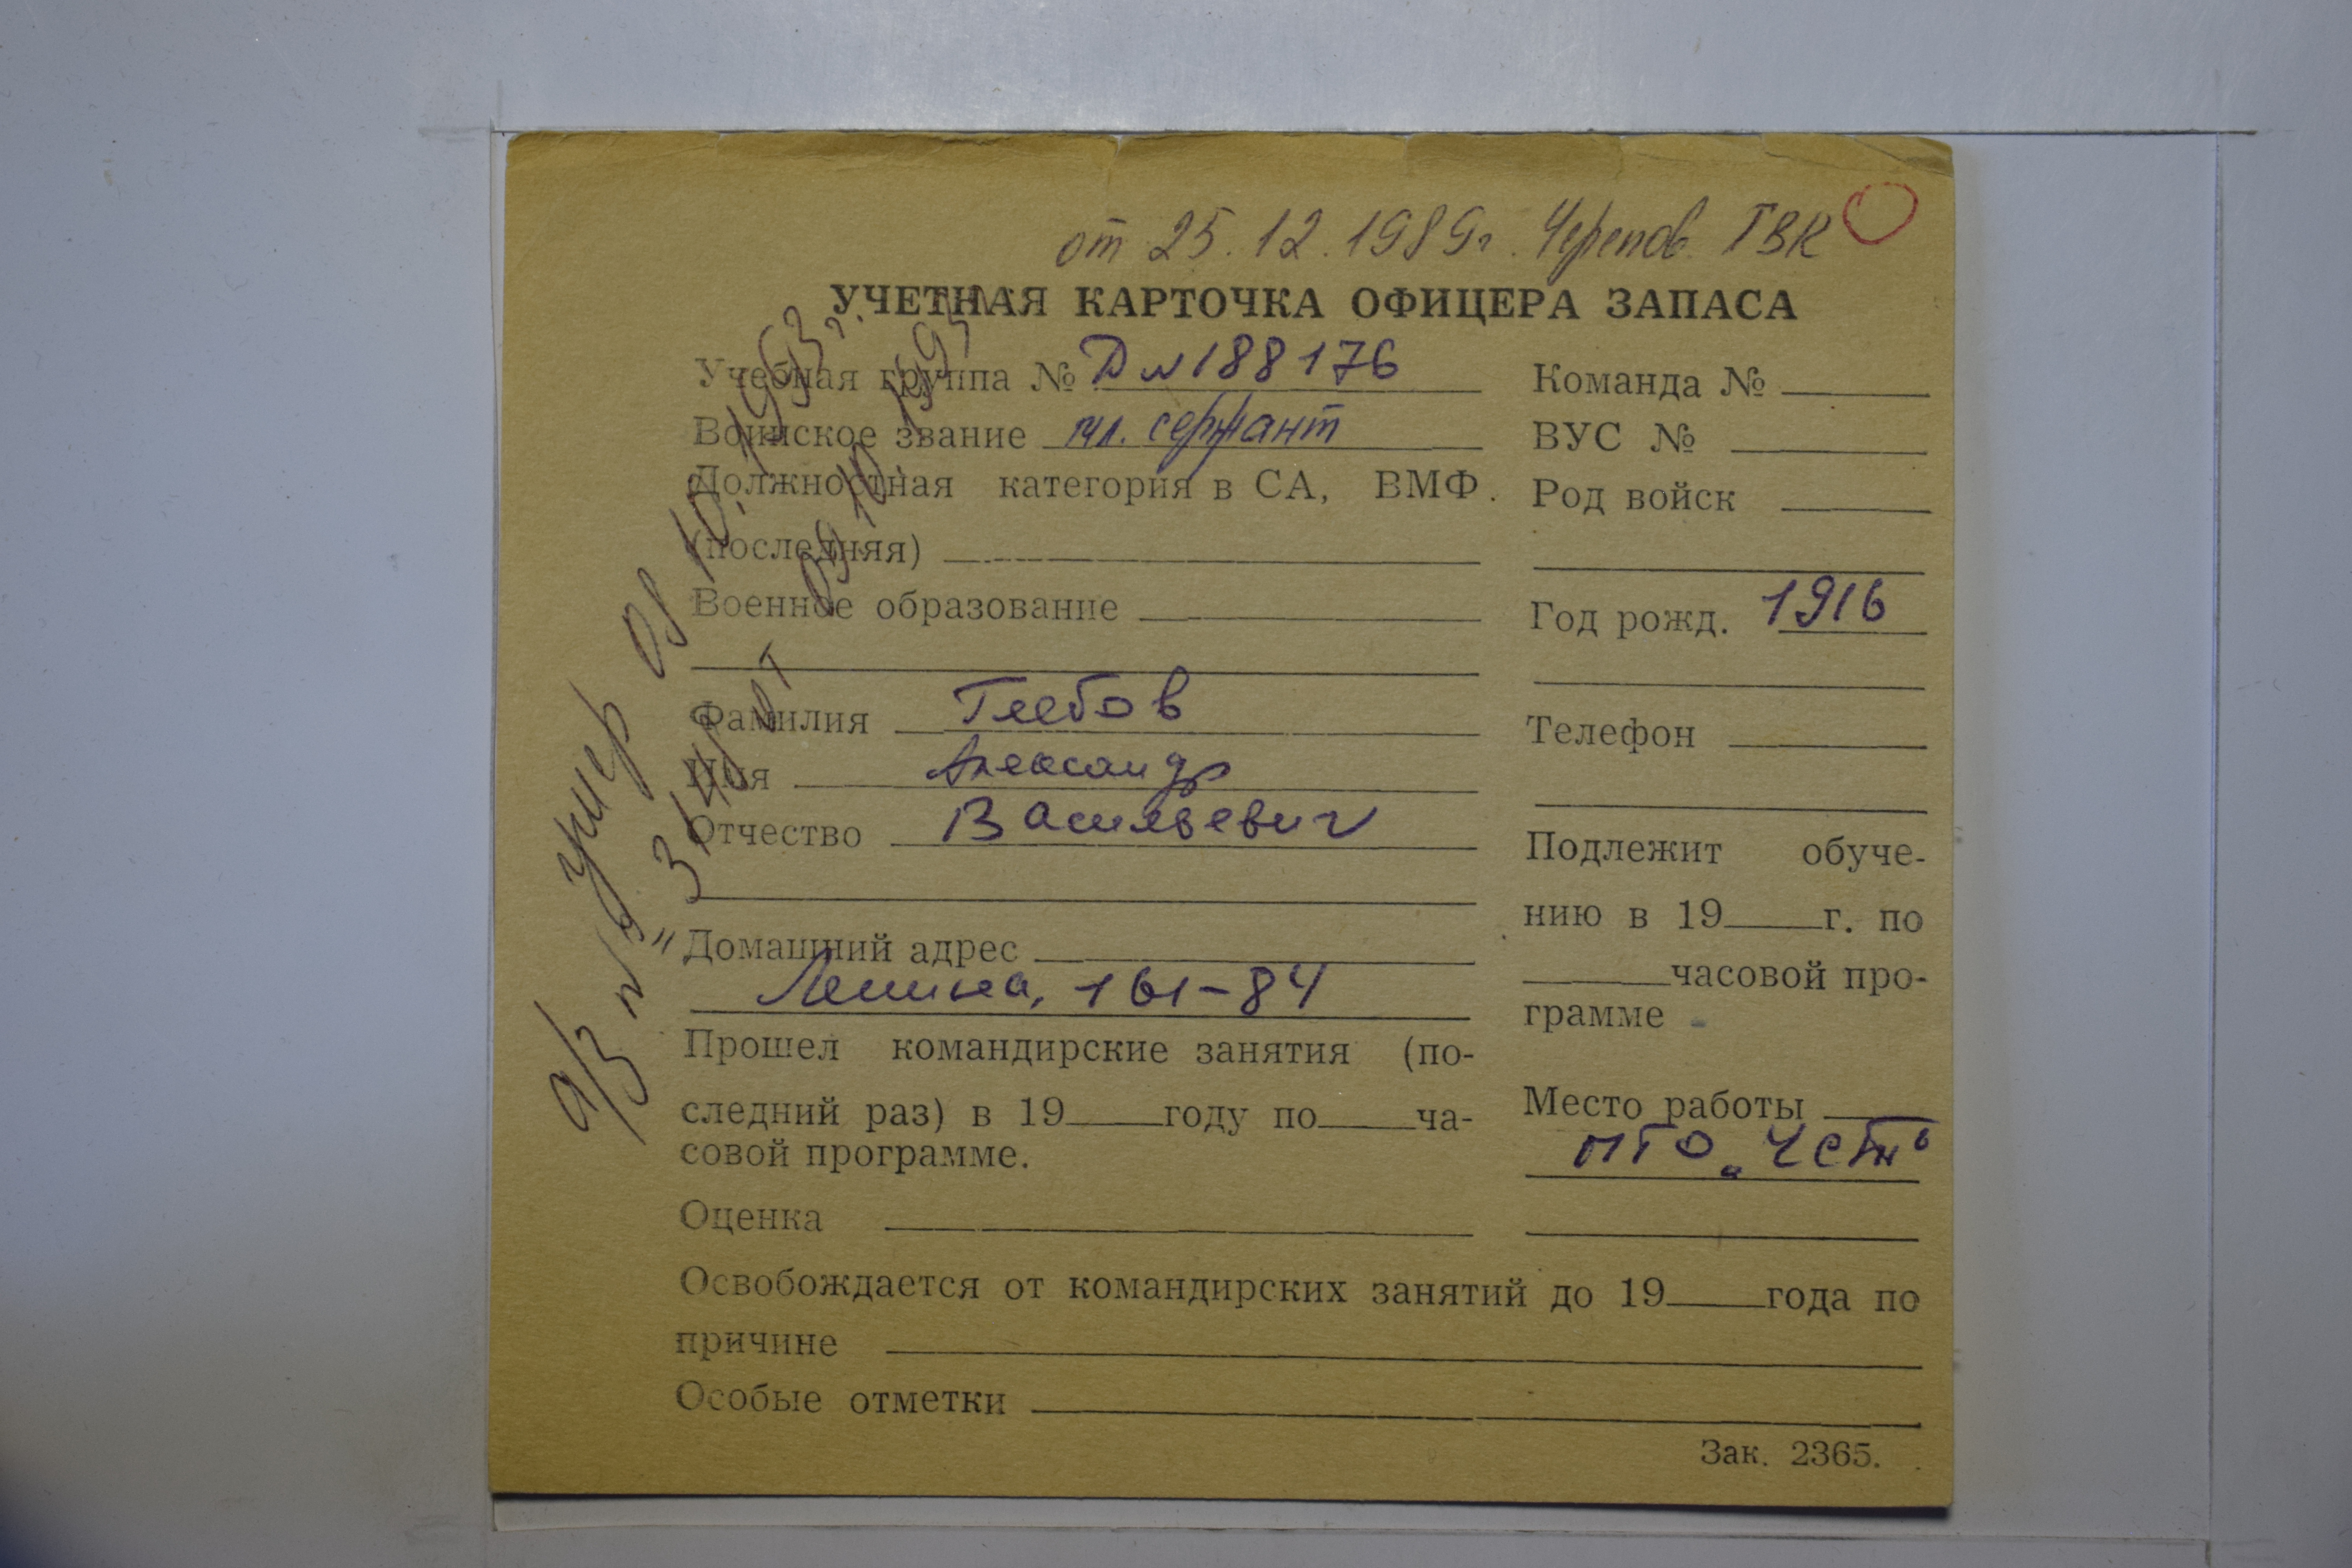 от 25.12.1989г. Черепов. ГВК
УЧЕТНАЯ КАРТОЧКА ОФИЦЕРА ЗАПАСА
Учебная группа № Д № 188176
Воинское звание мл. сержант
Должностная категория в СА, ВМФ.
(последняя)
Военное образование
Фамилия Глебов
Имя Александр
Отчество Васильевич
Домашний адрес
Ленина, 161-84
Прошел командирские занятия (по-
следний раз) в 19 году по ча-
совой программе.
Оценка
Команда №
ВУС №
Род войск
Год рожд. 1916
Телефон
Подлежит обуче-
нию в 19 г. по
часовой про-
грамме
Место работы
ПТО
Освобождается от командирских занятий до 19 года по
причине
Особые отметки
Зак. 2365.
умер 08 10. 1993г.
а/з №
от 09.10.1993